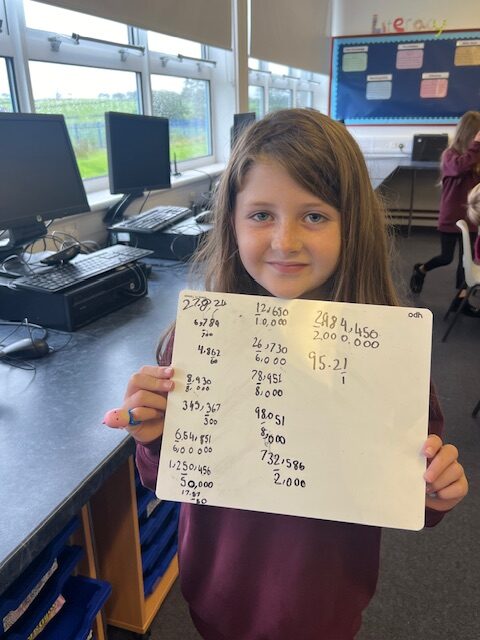 Literacy
odh
278,24
6,789
700
4,862
60
8,930
8,000
345,367
300
6,64,851
6,00000
1,250,456
50,000
17.57
50
12,650
10,000
26,730
6,000
78,951
8,000
98,051
8,000
732,586
2,000
2,484,450
2,000,000
95.21
1